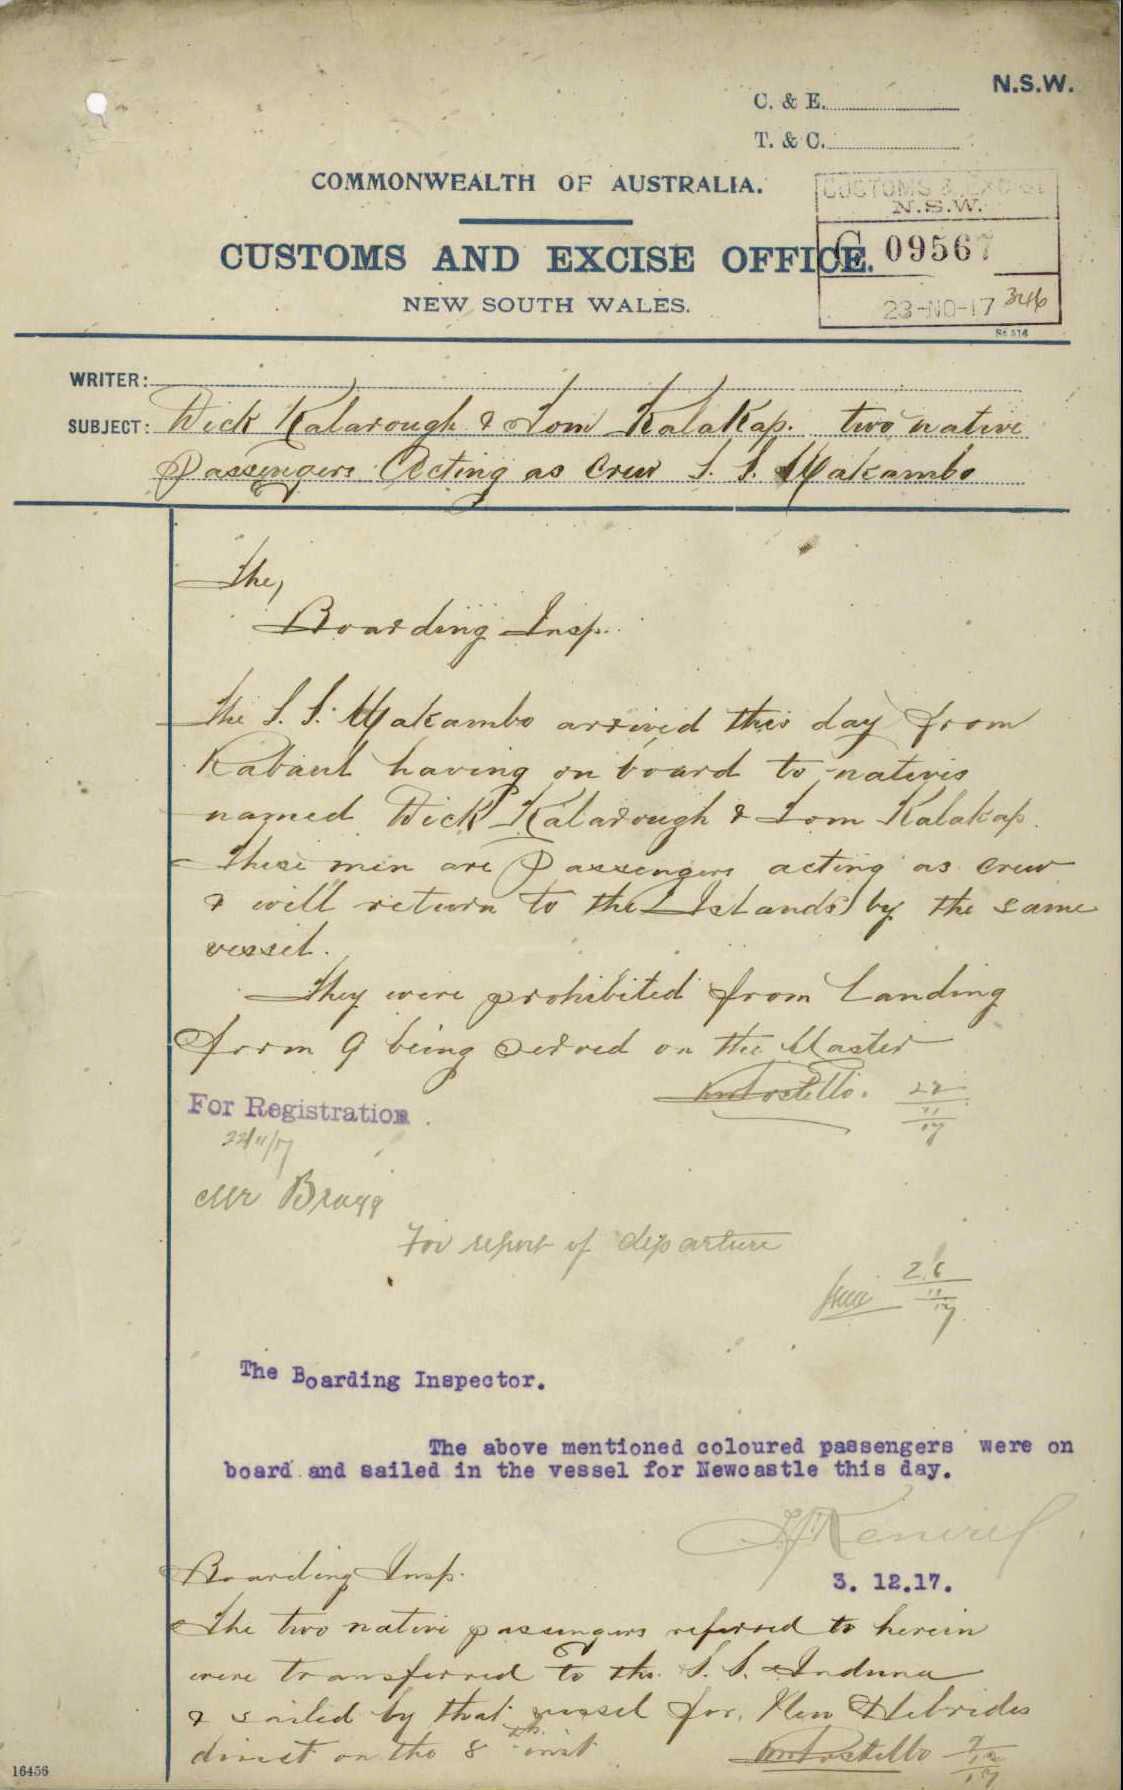 N.S.W.
C. & E.
T. & C.
COMMONWEALTH OF AUSTRALIA.
CUSTOMS & EXCISE
N.S.W.
CUSTOMS AND EXCISE OFFICE.
G 09567
NEW SOUTH WALES.
23-NO-17 346
WRITER:
SUBJECT: Dick Kalarough & Tom Kalakap. two native
Passengers Acting as Crew S. S. Makambo
The,
Boarding Insp.
The S. S. Makambo arrived this day from
Rabaul having on board to natives
named Dick Kalarough & Tom Kalakap.
These men are Passengers acting as crew
& will return to the Islands by the same
vessel.
They were prohibited from Landing
form 9 being served on the Master
22
11
17
For Registration.
22/11/17
Mr Bragg
For report of departure
26
11
17
The Boarding Inspector.
The above mentioned coloured passengers were on
board and sailed in the vessel for Newcastle this day.
3. 12.17.
Boarding Insp.
The two native passengers referred to herein
were transferred to the S. S. Induna
& sailed by that vessel for New Hebrides
direct on the 8th inst
16456